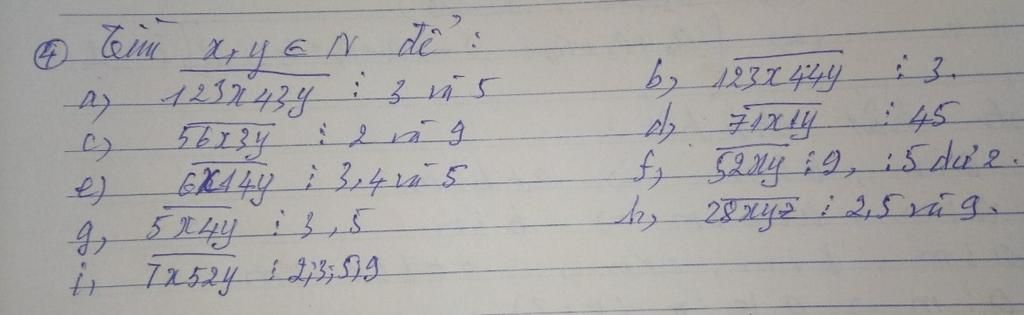 ④ Tìm x, y ∈ N để :
a, 123x43y ⋮ 3 và 5 b, 123x44y ⋮ 3.
c, 56x3y ⋮ 2 và 9 d, 71x1y ⋮ 45
e) 6x14y ⋮ 3, 4 và 5 f, 52xy ⋮ 9, ⋮ 5 dư 2.
g, 5x4y ⋮ 3, 5 h, 28xyz ⋮ 2, 5 và 9.
i, 7x52y ⋮ 2; 3; 5; 9